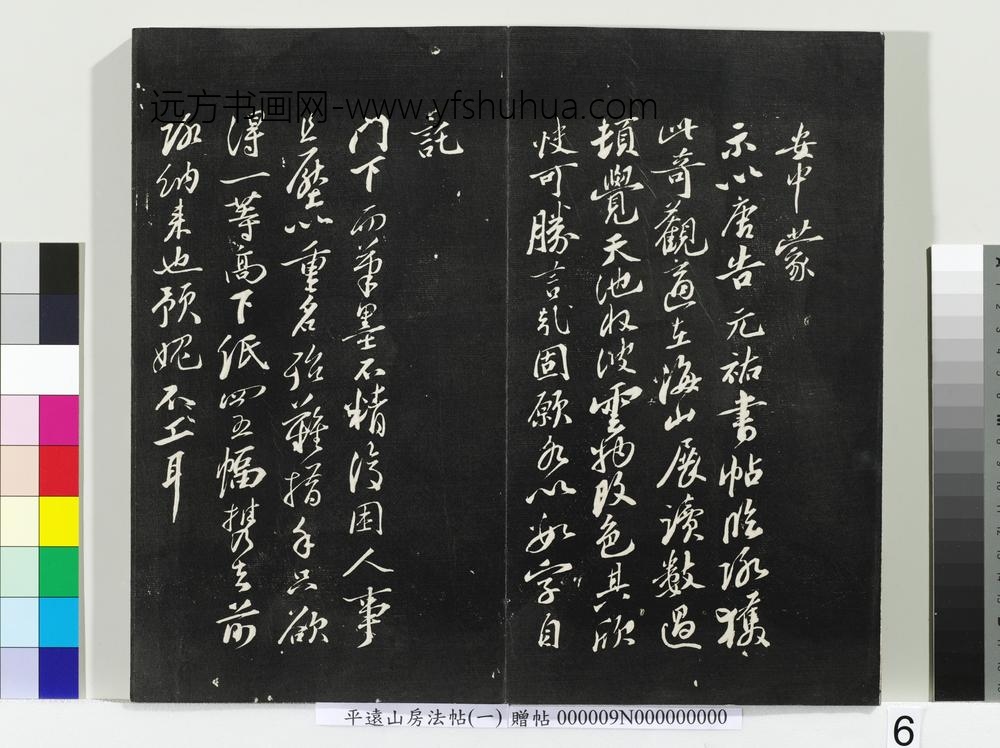 远方书画网-www.yfshuhua.com
安中蒙
示以唐告元祐書帖臨路獲
此奇觀適在海山展讀數過
頓覺天池收波雲物改色其欣
快可勝言哉固願以數字自
託
門下而筆墨不精復困人事
且壓以重名殆難措手只欲
得一等高下纸四五幅携去前
路納来也預媿不工耳
平遠山房法帖(一) 贈帖 000009N000000000
6